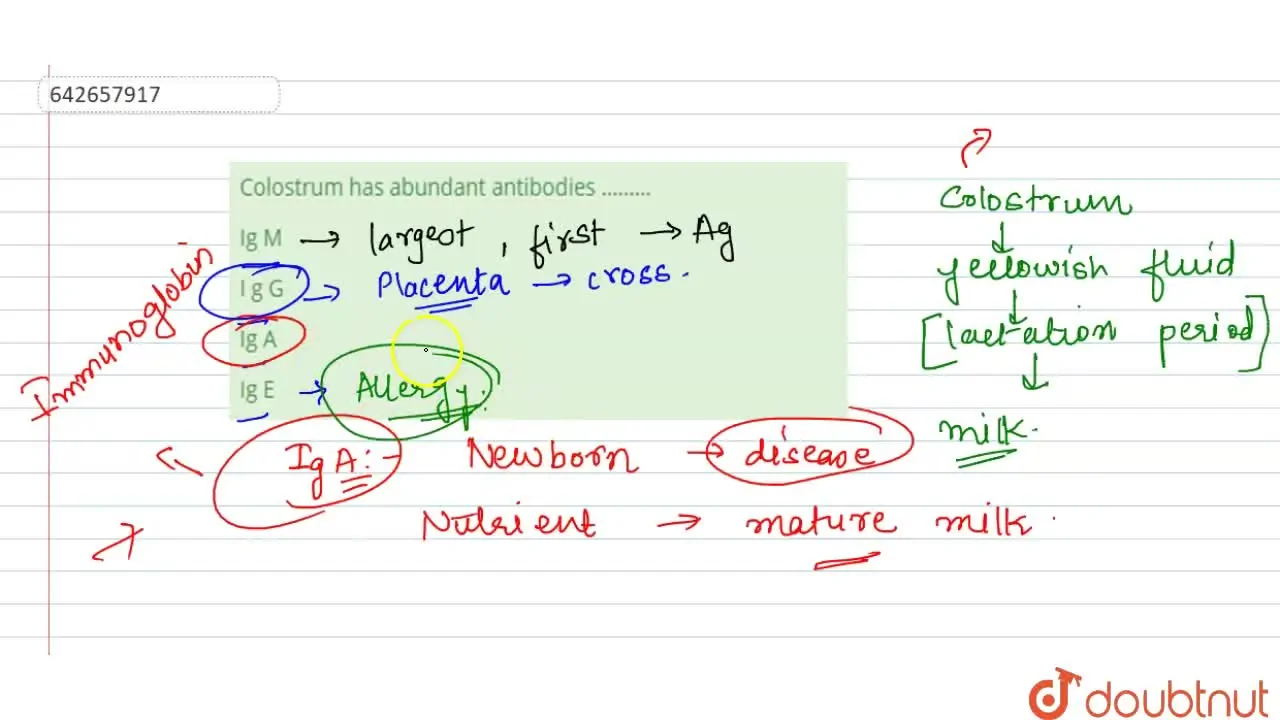 642657917
Colostrum has abundant antibodies .........
Ig M → largest , first → Ag
I g G → Placenta → cross.
Ig A
Ig E → Allergy.
Immunoglobin
IgA:- Newborn → disease
Nutrient → mature milk.
Colostrum
↓
yellowish fluid
↓
[lactation period]
↓
milk.
doubtnut